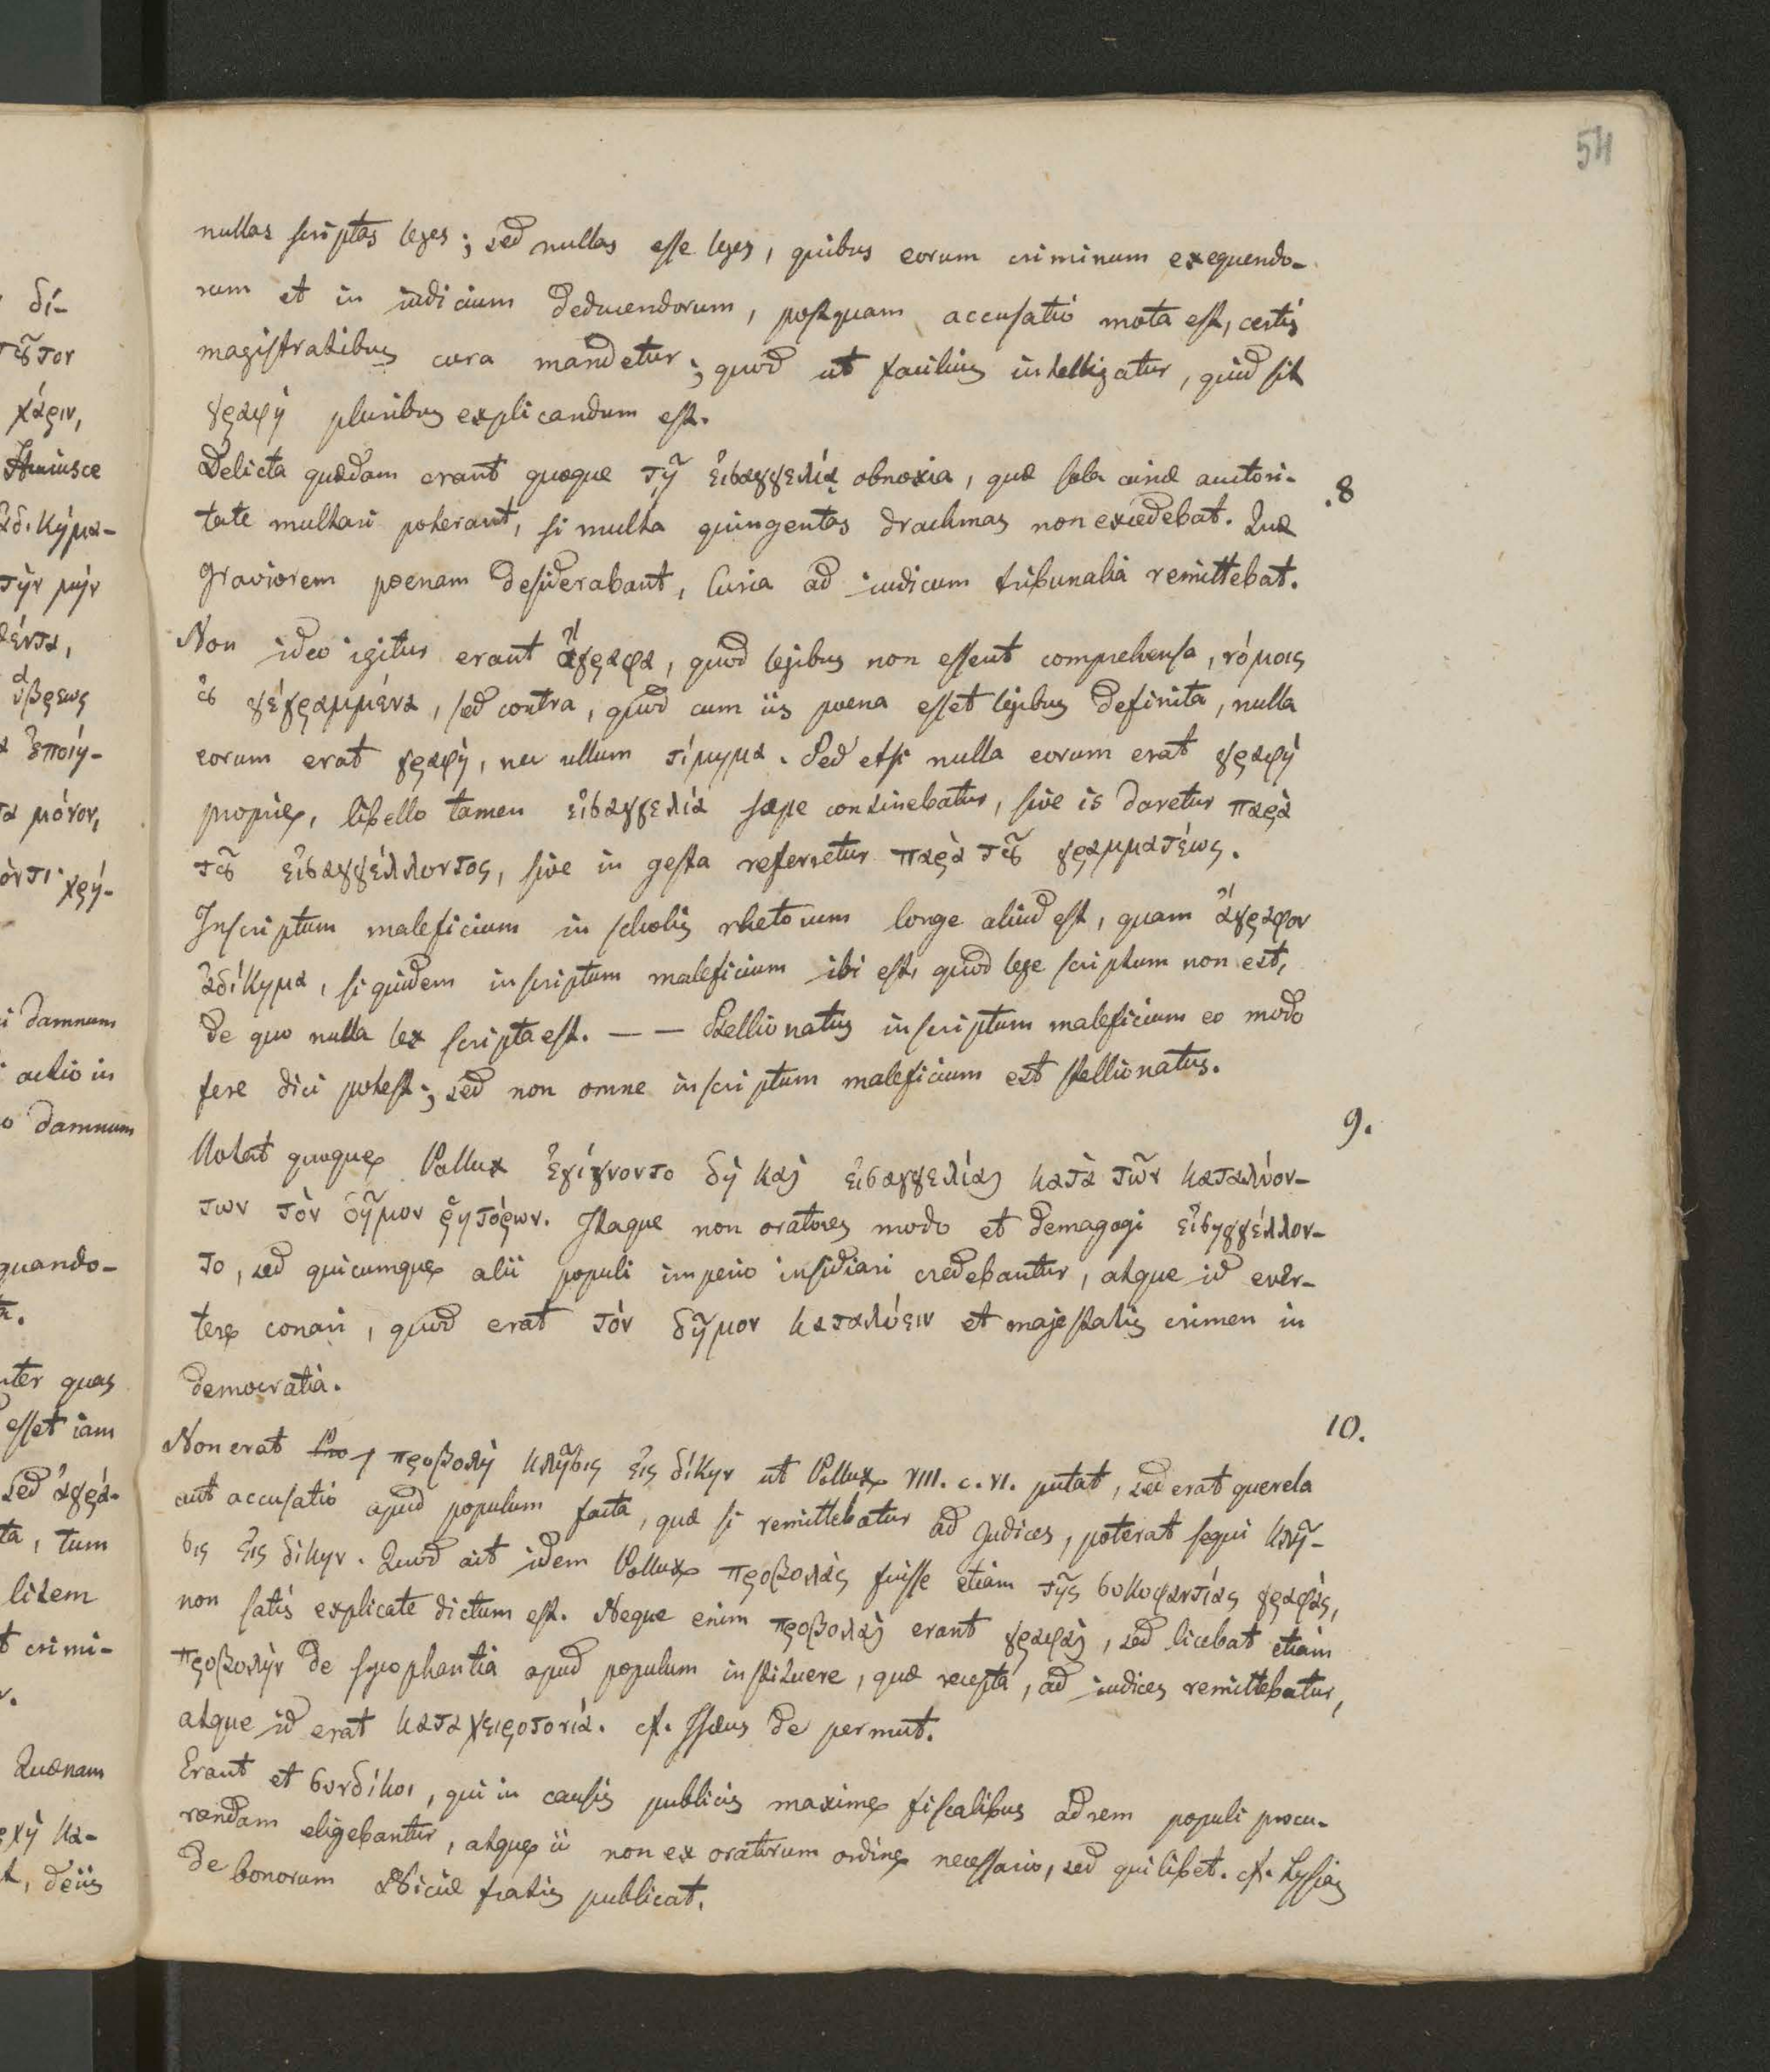 54
nullas scriptas leges; sed nullas esse leges, quibus eorum criminum exequendo-
rum et in iudicium deducendorum, postquam accusatio mota est, certis
magistratibus cura mandetur; quod ut facilius intelligatur, quid sit
γραφὴ pluribus explicandum est.
Delicta quædam erant quoque τῇ εἰσαγγελίᾳ obnoxia, quæ sola curiæ auctori-
8.
tate multari poterant, si multa quingentas drachmas non excedebat. Quæ
graviorem poenam desiderabant, Curia ad iudicum tribunalia remittebat.
Non ideo igitur erant ἄγραφα, quod legibus non essent comprehensa, νόμοις
ȣ̓ γέγραμμένα, sed contra, quod cum iis poena esset legibus definita, nulla
eorum erat γραφὴ, nec ullum τίμημα. Sed etsi nulla eorum erat γραφὴ
proprie, libello tamen εἰσαγγελία sæpe continebatur, sive is daretur παρὰ
τȣ͂ εἰσαγγέλλοντος, sive in gesta referretur παρὰ τȣ͂ γραμματέως.
Inscriptum maleficium in scholis rhetorum longe aliud est, quam ἄγραφον
ἀδίκημα, siquidem inscriptum maleficium ibi est, quod lege scriptum non est,
de quo nulla lex scripta est. — — Stellionatus inscriptum maleficium eo modo
fere dici potest; sed non omne inscriptum maleficium est stellionatus.
9.
Notat quoque Pollux ἐγίγνοντο δὴ καὶ εἰσαγγελίαι κατὰ τῶν καταλύον-
των τὸν δῆμον ῥητόρων. Itaque non oratores modo et demagogi εἰσηγγέλλον-
το, sed quicumque alii populi imperio insidiari credebantur, atque id ever-
tere conari, quod erat τὸν δῆμον καταλύειν et majestatis crimen in
democratia.
10.
Non erat προβολὴ κλῆσις εἰς δίκην ut Pollux VIII. c. VI. putat, sed erat querela
aut accusatio apud populum facta, quæ si remittebatur ad Judices, poterat sequi κλῆ-
σις εἰς δίκην. Quod ait idem Pollux προβολὰς fuisse etiam τῆς συκοφαντίας γραφὰς,
non satis explicate dictum est. Neque enim προβολαὶ erant γραφαὶ, sed licebat etiam
προβολὴν de sycophantia apud populum instituere, quæ recepta, ad iudices remittebatur,
atque id erat καταχειροτονία. cf. Isæus de permut.
Erant et συνδίκοι, qui in causis publicis maxime fiscalibus ad rem populi procu-
randam eligebantur, atque ii non ex oratorum ordine necessario, sed quilibet. cf. Lysias
de bonorum Niciæ fratris publicat.